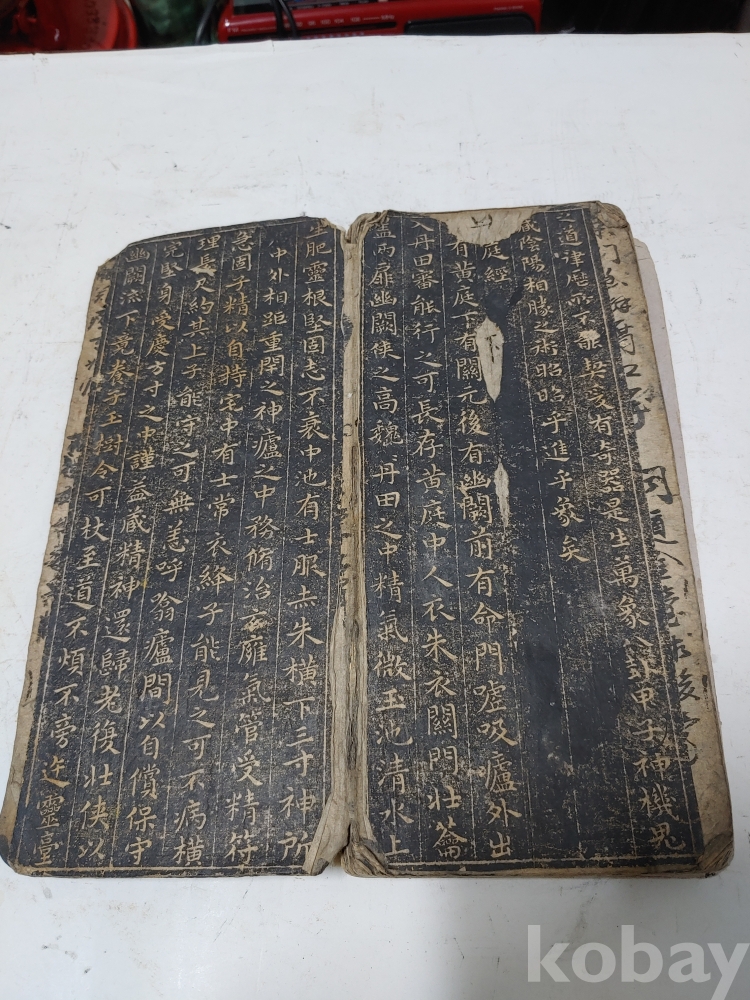 之道律曆所不能契爰有奇器是生萬象八卦甲子神機鬼
藏陰陽相勝之術昭昭乎進乎象矣
庭經
有黃庭下有關元後有幽闕前有命門噓吸廬外出
入丹田審能行之可長存黃庭中人衣朱衣關門壯蘥
盖兩扉幽闕俠之高魏丹田之中精氣微玉池清水上
生肥靈根堅固志不衰中池有士服赤朱橫下三寸神所
中外相距重閇之神廬之中務脩治玄廱氣管受精符
急固子精以自持宅中有士常衣絳子能見之可不病橫
理長尺約其上子能守之可無恙呼翕廬間以自償保守
完堅身受慶方寸之中謹益藏精神還歸老復壯俠以
幽闕流下竟養子玉樹令可杖至道不煩不旁迕靈臺
kobay